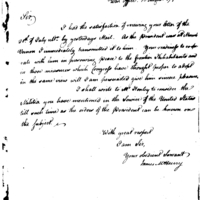 War Office
Sir,
I have the satisfaction of receiving your letter of the
10th of July ulto. by yesterdays Mail. As the President was at Mount
Vernon I immediately transmitted it to him. Your readiness to co-ope-
rate with him in preserving peace to the frontier Inhabitants and
in those measures which Congress have thought proper to adopt
in the same view will I am persuaded give him sincere pleasure.
I shall write to Col. Henley to consider the
Militia you have mentioned in the Service of the United States
till such time as the orders of the President can be known on
the subject.
With great respect
I am Sir,
Your Obedient Servant
James McHenry